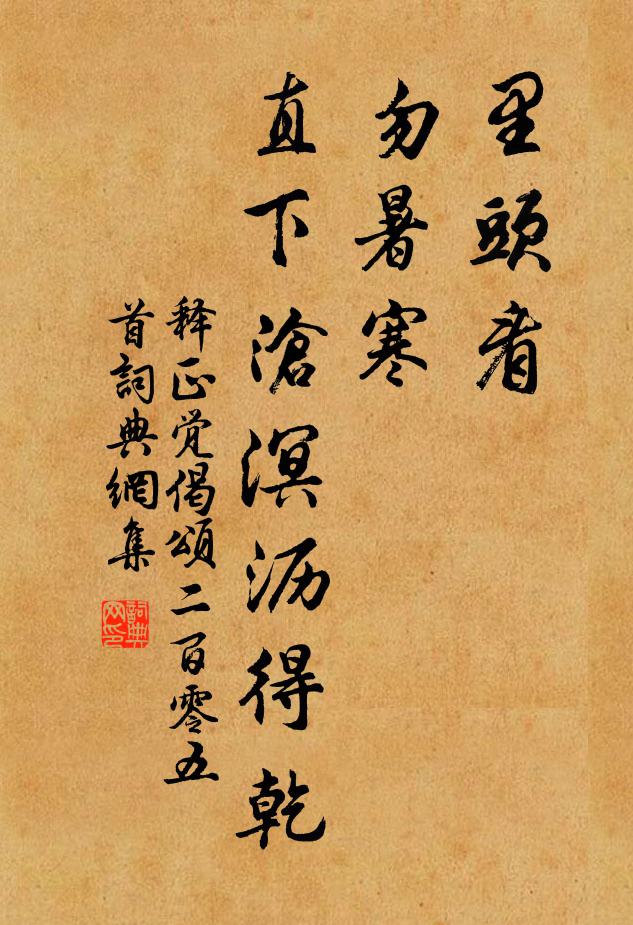 里頭看
勿暑寒
直下滄溟沥得乾
释正觉偈頌二百零五
首詞典網集
詞典网印